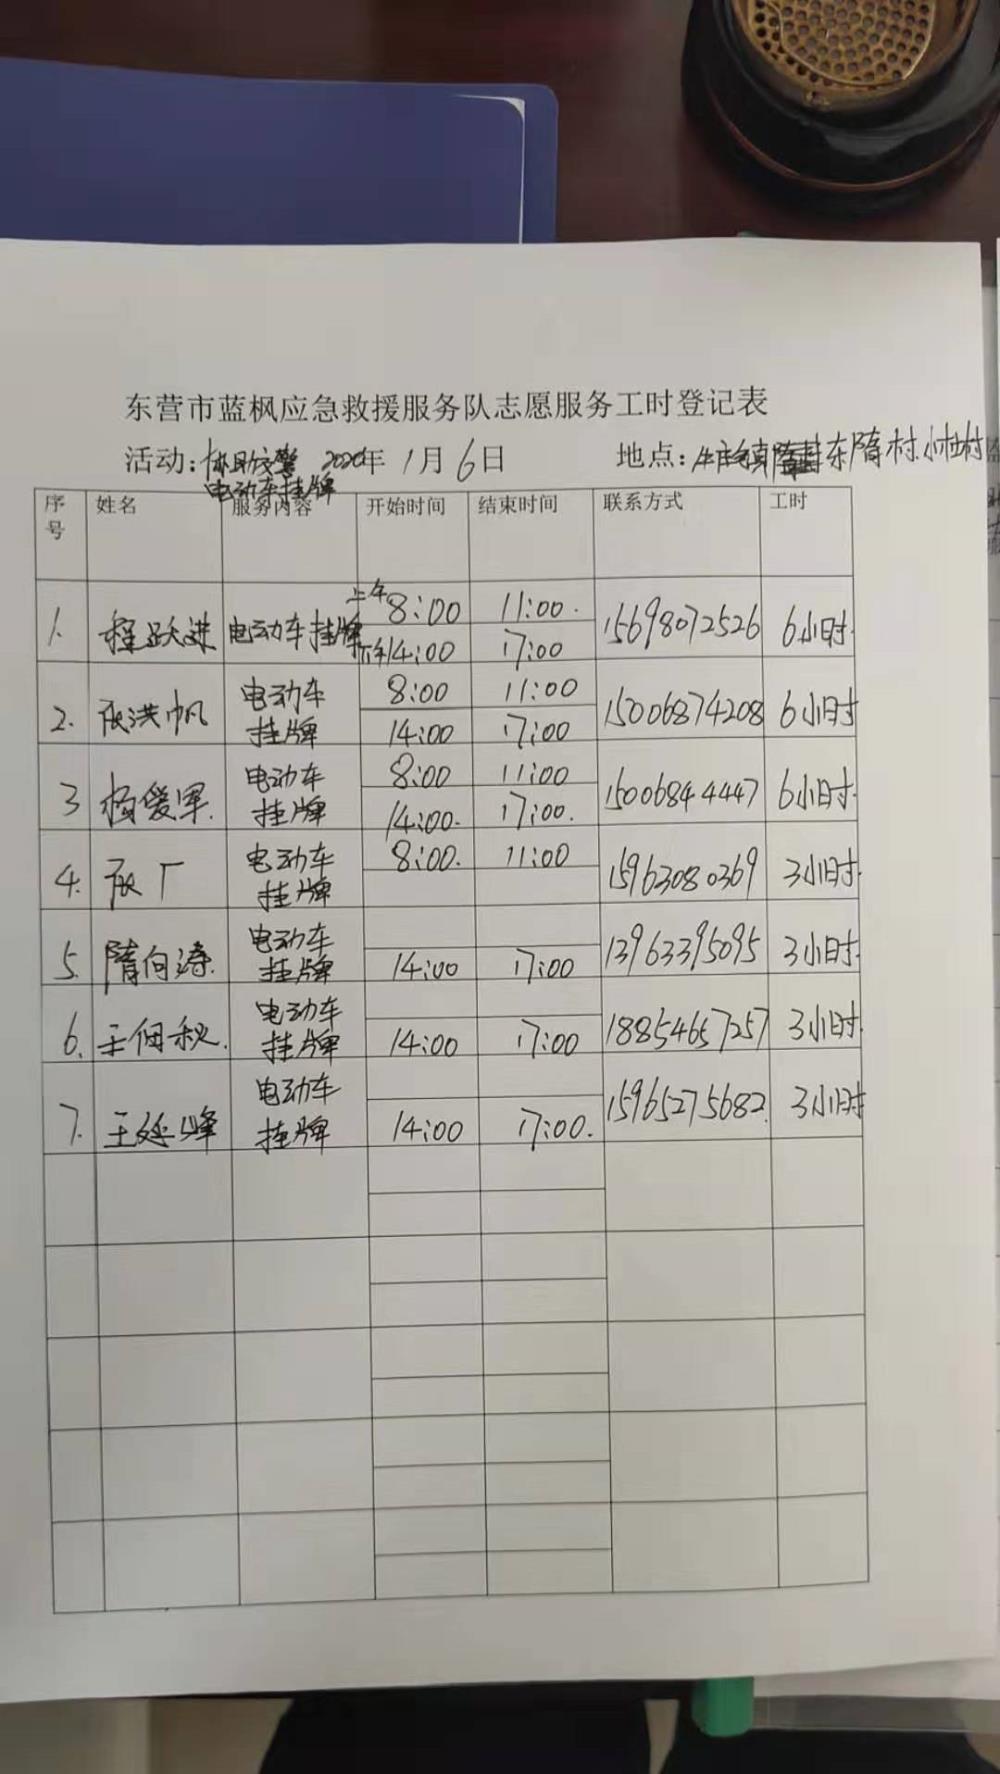 东营市蓝枫应急救援服务队志愿服务工时登记表
活动：协助交警 2020年 1月 6日 地点：牛庄镇 东隋村.小杜村
电动车挂牌
序号 姓名 服务内容 开始时间 结束时间 联系方式 工时
1. 程跃进 电动车挂牌 上午8:00 11:00. 15698072526 6小时.
下午14:00 17:00
2. 张洪帆 电动车 8:00 11:00 15006874208 6小时
挂牌 14:00 17:00
3 杨爱军. 电动车 8:00 11:00 15006844447 6小时.
挂牌 14:00. 17:00.
4. 张厂 电动车 8:00. 11:00 15963080369 3小时.
挂牌
5. 隋向涛. 电动车 13963395095 3小时.
挂牌 14:00 17:00
6. 王佃秋. 电动车 18854657257 3小时.
挂牌 14:00 17:00
7. 王延峰 电动车 15965275682. 3小时
挂牌 14:00 17:00.